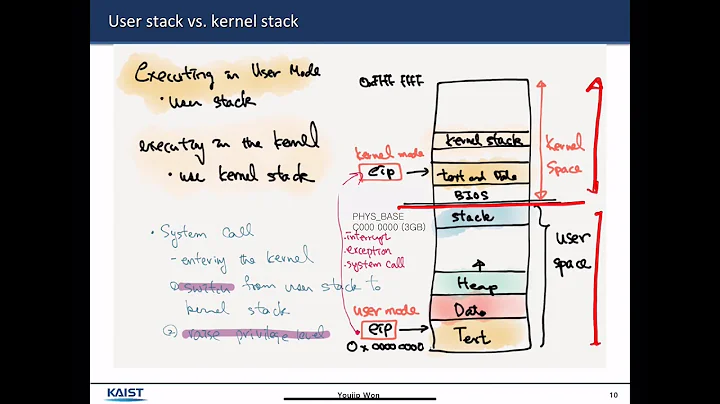 User stack vs. kernel stack
Executing in User Mode
• user stack
executing in the kernel
• use kernel stack
• System call
- entering the kernel
① switch from user stack to
kernel stack
② raise privilege level
0xFFFF FFFF
kernel mode
eip
PHYS_BASE
C000 0000 (3GB)
• interrupt
• exception
• system call
user mode
eip
0x00000000
kernel stack
text and Data
BIOS
stack
Heap
Data
Text
Kernel
Space
user
space
KAIST
Youjip Won
10